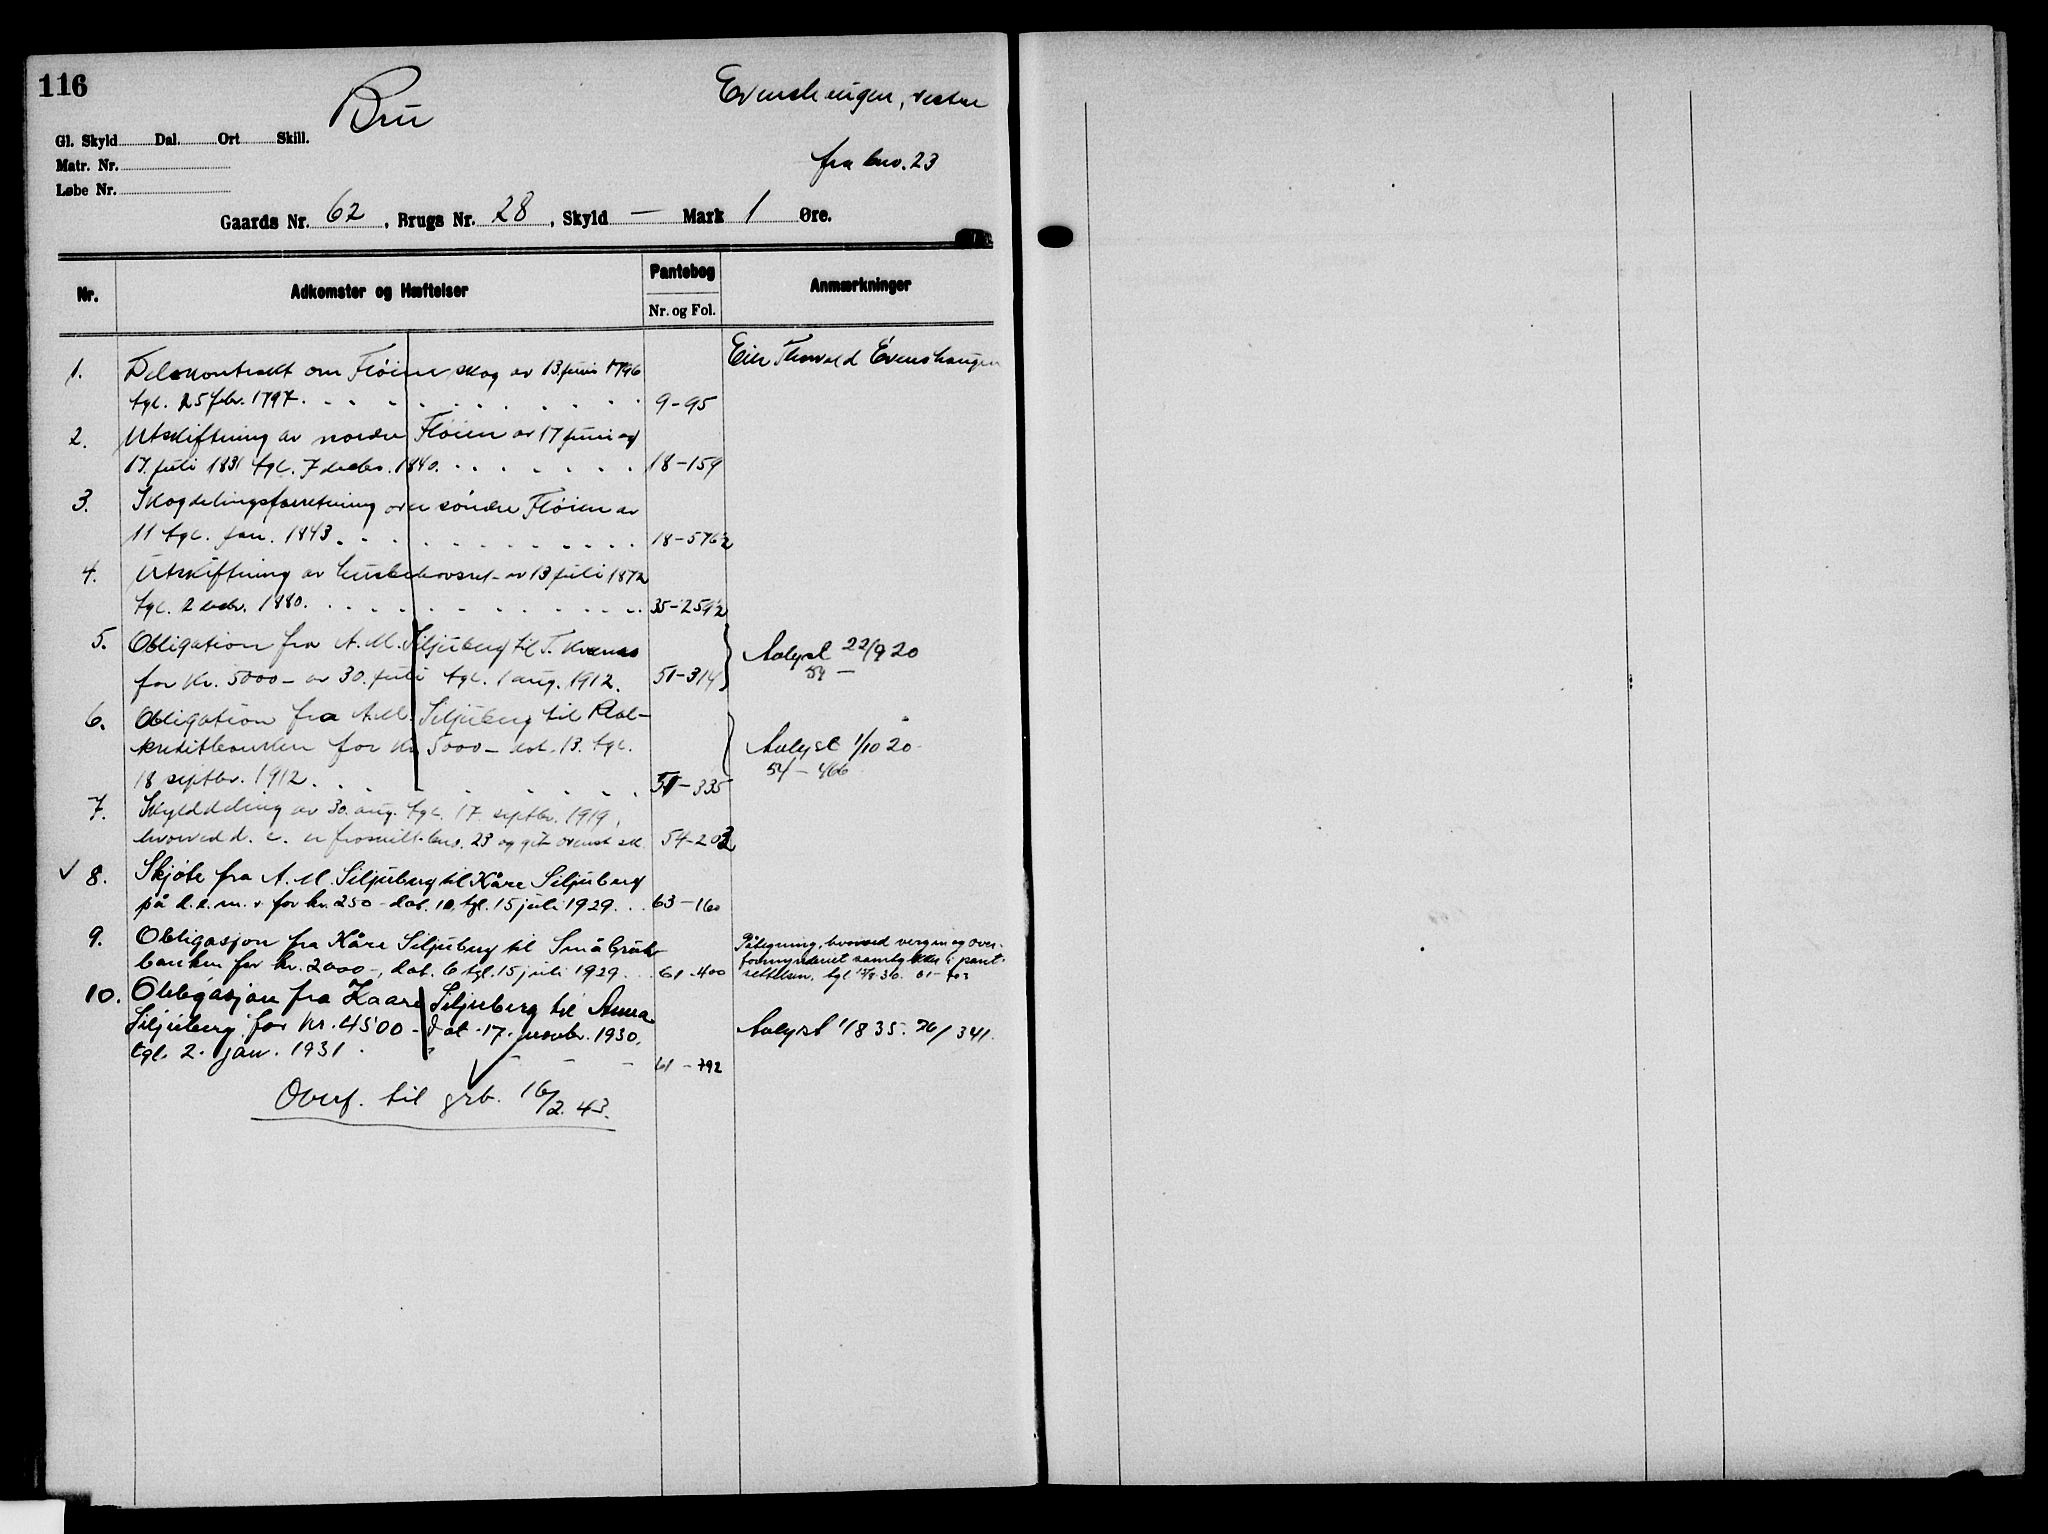 116
Bru
Evenshaugen, vestre
fra bno. 23
Gl. Skyld Dal. Ort Skill.
Matr. Nr.
Løbe Nr.
Gaards Nr. 62, Brugs Nr. 28, Skyld — Mark 1 Øre.
Nr. Adkomster og Hæftelser Pantebog Nr. og Fol. Anmærkninger
Eier Thorvald Evenshaugen
1. Delekontrakt om Fløien skog av 13. juni 1796
tgl. 25 febr. 1797. 9-95
2. Utskiftning av nordre Fløien av 17 juni og
17. juli 1831 tgl. 7 decbr. 1840. 18-159
3. Skogdelingsforretning over søndre Fløien av
11 tgl. jan. 1843. 18-576
4. Utskiftning av husbehovsret av 13 juli 1872
tgl. 2 decbr. 1880. 35-259
5. Obligation fra A. M. Siljuberg til T. Kvernes
for kr. 5000 - av 30. juli tgl. 1 aug. 1912. 51-314
Avlyst 22/9 20
54 —
6. Obligation fra A. M. Siljuberg til Real-
kreditbanken for kr. 5000 - dat. 13. tgl.
18 septbr. 1912. 51-335
Avlyst 1/10 20
54 - 466
7. Skylddeling av 30. aug. tgl. 17. septbr. 1919,
hvorved d. e. er fraskilt bno. 23 og git ovenst. sk. 54-203
✓ 8. Skjøte fra A. M. Siljuberg til Kåre Siljuberg
på d. e. m. v for kr. 250 - dat. 10, tgl. 15 juli 1929. 63-160
9. Obligasjon fra Kåre Siljuberg til Småbruk-
banken for kr. 2000 -, dat. 6 tgl. 15 juli 1929. 61-400
Påtegning, hvorved vergen og over-
formynderiet samtykker i pant-
settelsen, tgl.
10. Obligasjon fra Kaare Siljuberg til Anna
Siljuberg for kr. 4500 - dat. 17. novbr. 1930,
tgl. 2. jan. 1931. 61-792
Avlyst 1/8 35. 76/341.
Overf. til grb. 16/2. 43.